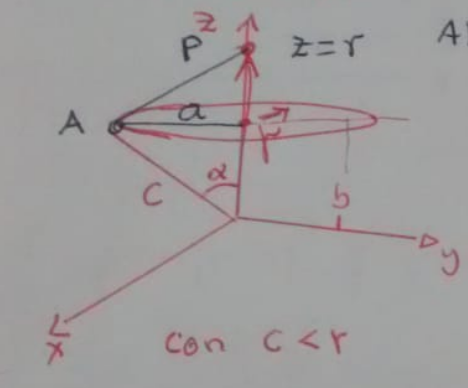 z
P z=r A
A a r
C α b
y
x
con c<r